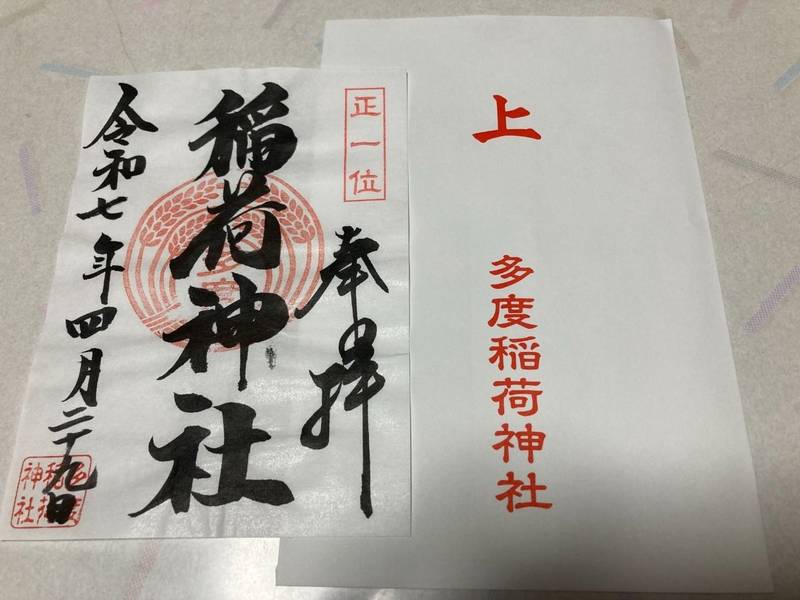 正一位
奉拝
稲荷神社
令和七年四月二十九日
多度稲荷神社
上
多度稲荷神社